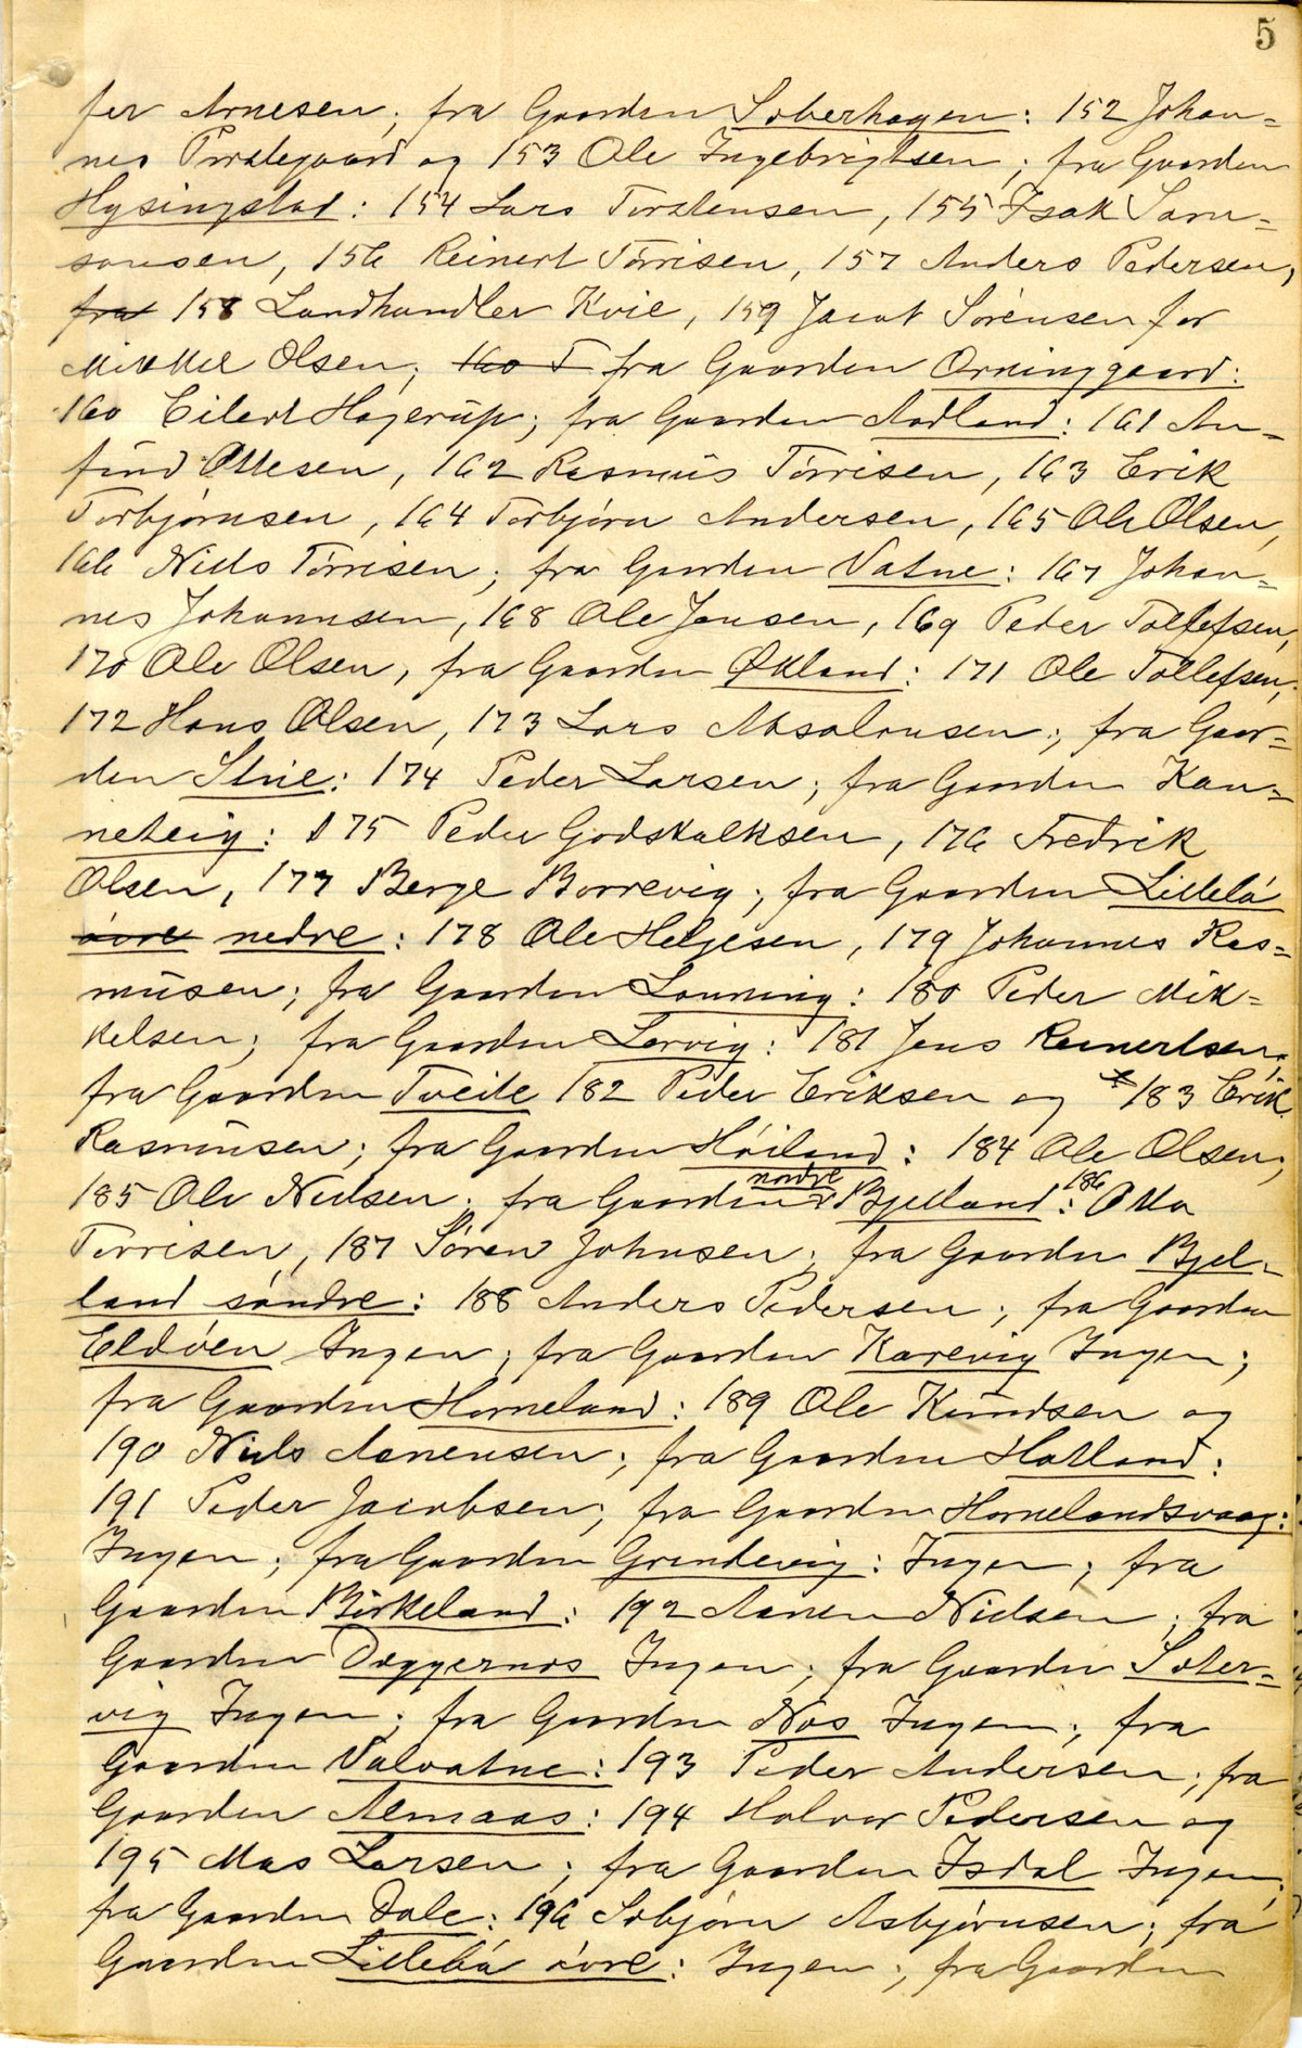 5
fer Arnesen; fra Gaarden Soberhagen: 152 Johan=
nes Prestegaard og 153 Ole Ingebrigtsen; fra Gaarden
Hysingstad: 154 Lars Torstensen, 155 Isak Sam=
sonsen, 156 Reinert Tørrisen, 157 Anders Pedersen,
fra 158 Landhandler Kvie, 159 Jacob Sørensen for
Mikkel Olsen; 160 T fra Gaarden Orninggaard:
160 Eilert Hagerup; fra Gaarden Aadland: 161 An=
find Ottesen, 162 Rasmus Tørrisen, 163 Erik
Torbjørnsen, 164 Torbjørn Andersen, 165 Ole Olsen,
166 Niels Tørrisen; fra Gaarden Vatne: 167 Johan=
nes Johannesen, 168 Ole Jensen, 169 Peder Tollefsen,
170 Ole Olsen, fra Gaarden Økland: 171 Ole Tollefsen,
172 Hans Olsen, 173 Lars Absalonsen; fra Gaar=
den Stue: 174 Peder Larsen; fra Gaarden Kan=
neteig: 175 Peder Godskalksen, 176 Fredrik
Olsen, 177 Berge Borrevig; fra Gaarden Lillebø
øvre nedre: 178 Ole Helgesen, 179 Johannes Ras=
musen; fra Gaarden Lønning: 180 Peder Mik=
kelsen; fra Gaarden Lervig: 181 Jens Reinertsen;
fra Gaarden Tveite 182 Peder Eriksen og 183 Erik
Rasmusen; fra Gaarden Høiland: 184 Ole Olsen,
185 Ole Nielsen; fra Gaarden nordre Bjelland: 186 Otto
Torrisen, 187 Søren Johnsen; fra Gaarden Bjel=
land søndre: 188 Anders Pedersen; fra Gaarden
Eldøen Ingen; fra Gaarden Karevig Ingen;
fra Gaarden Horneland: 189 Ole Knudsen og
190 Niels Aanensen; fra Gaarden Hatland:
191 Peder Jacobsen; fra Gaarden Hornelandsvaag:
Ingen; fra Gaarden Grindevig: Ingen; fra
Gaarden Birkeland: 192 Aanen Nielsen; fra
Gaarden Døggernes Ingen; fra Gaarden Soter=
vig Ingen; fra Gaarden Nøs Ingen; fra
Gaarden Valvatne: 193 Peder Andersen; fra
Gaarden Almaas: 194 Halvor Pedersen og
195 Mas Larsen; fra Gaarden Isdal Ingen;
fra Gaarden Dale: 196 Sobjørn Asbjørnsen; fra
Gaarden Lillebø øvre: Ingen; fra Gaarden